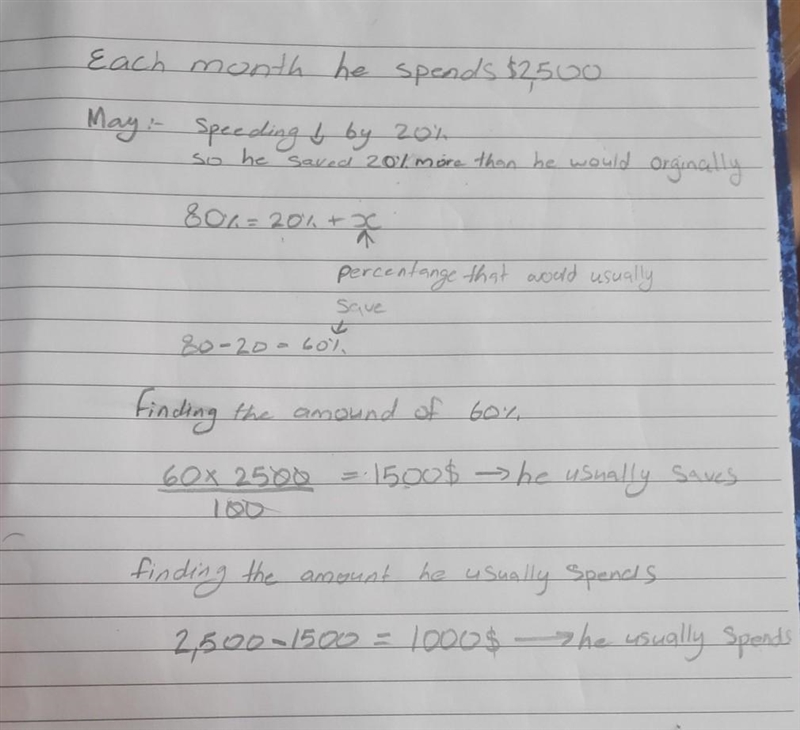 Each month he spends $2,500
May:- Speeding ↓ by 20%
so he saved 20% more than he would orginally
80% = 20% + x
↑
percentange that would usually
save
↓
80-20 = 60%
Finding the amound of 60%
60 x 2500 / 100 = 1500$ → he usually saves
finding the amount he usually spends
2,500-1500 = 1000$ → he usually spends